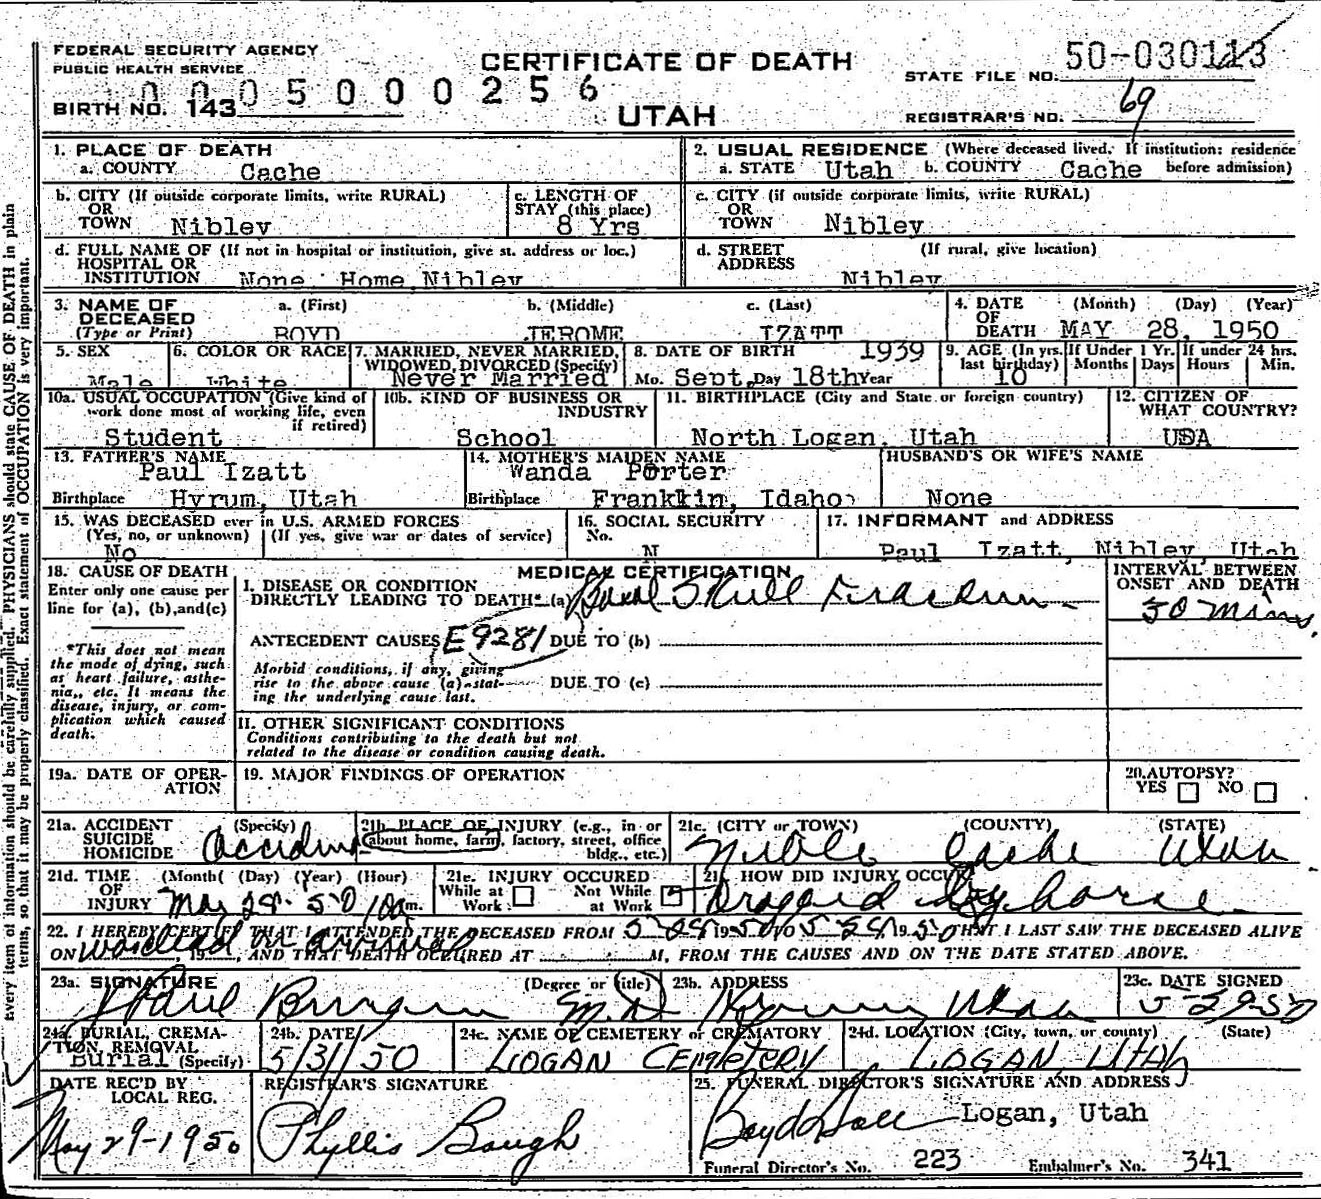 FEDERAL SECURITY AGENCY
PUBLIC HEALTH SERVICE
CERTIFICATE OF DEATH
UTAH
STATE FILE NO. 50-030113
0005000256
BIRTH NO. 143
REGISTRAR'S NO. 69
1. PLACE OF DEATH
a. COUNTY Cache
2. USUAL RESIDENCE (Where deceased lived. If institution: residence before admission)
a. STATE Utah b. COUNTY Cache
b. CITY (If outside corporate limits, write RURAL)
OR
TOWN Nibley
c. LENGTH OF
STAY (this place)
8 Yrs
c. CITY (if outside corporate limits, write RURAL)
OR
TOWN Nibley
d. FULL NAME OF (If not in hospital or institution, give st. address or loc.)
HOSPITAL OR
INSTITUTION None Home Nibley
d. STREET (If rural, give location)
ADDRESS Nibley
3. NAME OF
DECEASED
(Type or Print)
a. (First) BOYD
b. (Middle) JEROME
c. (Last) IZATT
4. DATE (Month) (Day) (Year)
OF
DEATH MAY 28, 1950
5. SEX
Male
6. COLOR OR RACE
White
7. MARRIED, NEVER MARRIED,
WIDOWED, DIVORCED (Specify)
Never Married
8. DATE OF BIRTH 1939
Mo. Sept. Day 18th Year
9. AGE (In yrs. last birthday) 10
If Under 1 Yr. Months Days
If under 24 hrs. Hours Min.
10a. USUAL OCCUPATION (Give kind of
work done most of working life, even
if retired)
Student
10b. KIND OF BUSINESS OR
INDUSTRY
School
11. BIRTHPLACE (City and State or foreign country)
North Logan, Utah
12. CITIZEN OF
WHAT COUNTRY?
USA
13. FATHER'S NAME
Paul Izatt
Birthplace Hyrum, Utah
14. MOTHER'S MAIDEN NAME
Wanda Porter
Birthplace Frankkin, Idaho
HUSBAND'S OR WIFE'S NAME
None
15. WAS DECEASED ever in U.S. ARMED FORCES
(Yes, no, or unknown) (If yes, give war or dates of service)
No
16. SOCIAL SECURITY
No.
N
17. INFORMANT and ADDRESS
Paul Izatt, Nibley, Utah
18. CAUSE OF DEATH
Enter only one cause per
line for (a), (b), and (c)
*This does not mean
the mode of dying, such
as heart failure, asthe-
nia,, etc. It means the
disease, injury, or com-
plication which caused
death.
MEDICAL CERTIFICATION
I. DISEASE OR CONDITION
DIRECTLY LEADING TO DEATH* (a) Basal Skull Fracture
ANTECEDENT CAUSES E9281 DUE TO (b)
Morbid conditions, if any, giving
rise to the above cause (a) stat-
ing the underlying cause last.
DUE TO (c)
II. OTHER SIGNIFICANT CONDITIONS
Conditions contributing to the death but not
related to the disease or condition causing death.
INTERVAL BETWEEN
ONSET AND DEATH
30 mins.
19a. DATE OF OPER-
ATION
19. MAJOR FINDINGS OF OPERATION
20. AUTOPSY?
YES NO
21a. ACCIDENT
SUICIDE
HOMICIDE
(Specify) Accident
21b. PLACE OF INJURY (e.g., in or
about home, farm, factory, street, office
bldg., etc.)
21c. (CITY or TOWN) (COUNTY) (STATE)
Nibley Cache Utah
21d. TIME
OF
INJURY
(Month( (Day) (Year) (Hour)
May 28 - 50 10 a m.
21e. INJURY OCCURED
While at Work Not While at Work
21f. HOW DID INJURY OCCUR
Dragged by horse
22. I HEREBY CERTIFY THAT I ATTENDED THE DECEASED FROM 5-28 1950 TO 5-28 1950 THAT I LAST SAW THE DECEASED ALIVE
ON was dead on arrival, 19, AND THAT DEATH OCCURED AT M, FROM THE CAUSES AND ON THE DATE STATED ABOVE.
23a. SIGNATURE (Degree or title)
M.D.
23b. ADDRESS
Hyrum Utah
23c. DATE SIGNED
5-29-50
24a. BURIAL, CREMA-
TION REMOVAL
Burial (Specify)
24b. DATE
5/31/50
24c. NAME OF CEMETERY or CREMATORY
LOGAN CEMETERY
24d. LOCATION (City, town, or county) (State)
LOGAN, UTAH
DATE REC'D BY
LOCAL REG.
May 29-1950
REGISTRAR'S SIGNATURE
Phyllis Baugh
25. FUNERAL DIRECTOR'S SIGNATURE AND ADDRESS
Logan, Utah
Funeral Director's No. 223 Embalmer's No. 341
Every item of information should be carefully supplied. PHYSICIANS should state CAUSE OF DEATH in plain
terms, so that it may be properly classified. Exact statement of OCCUPATION is very important.